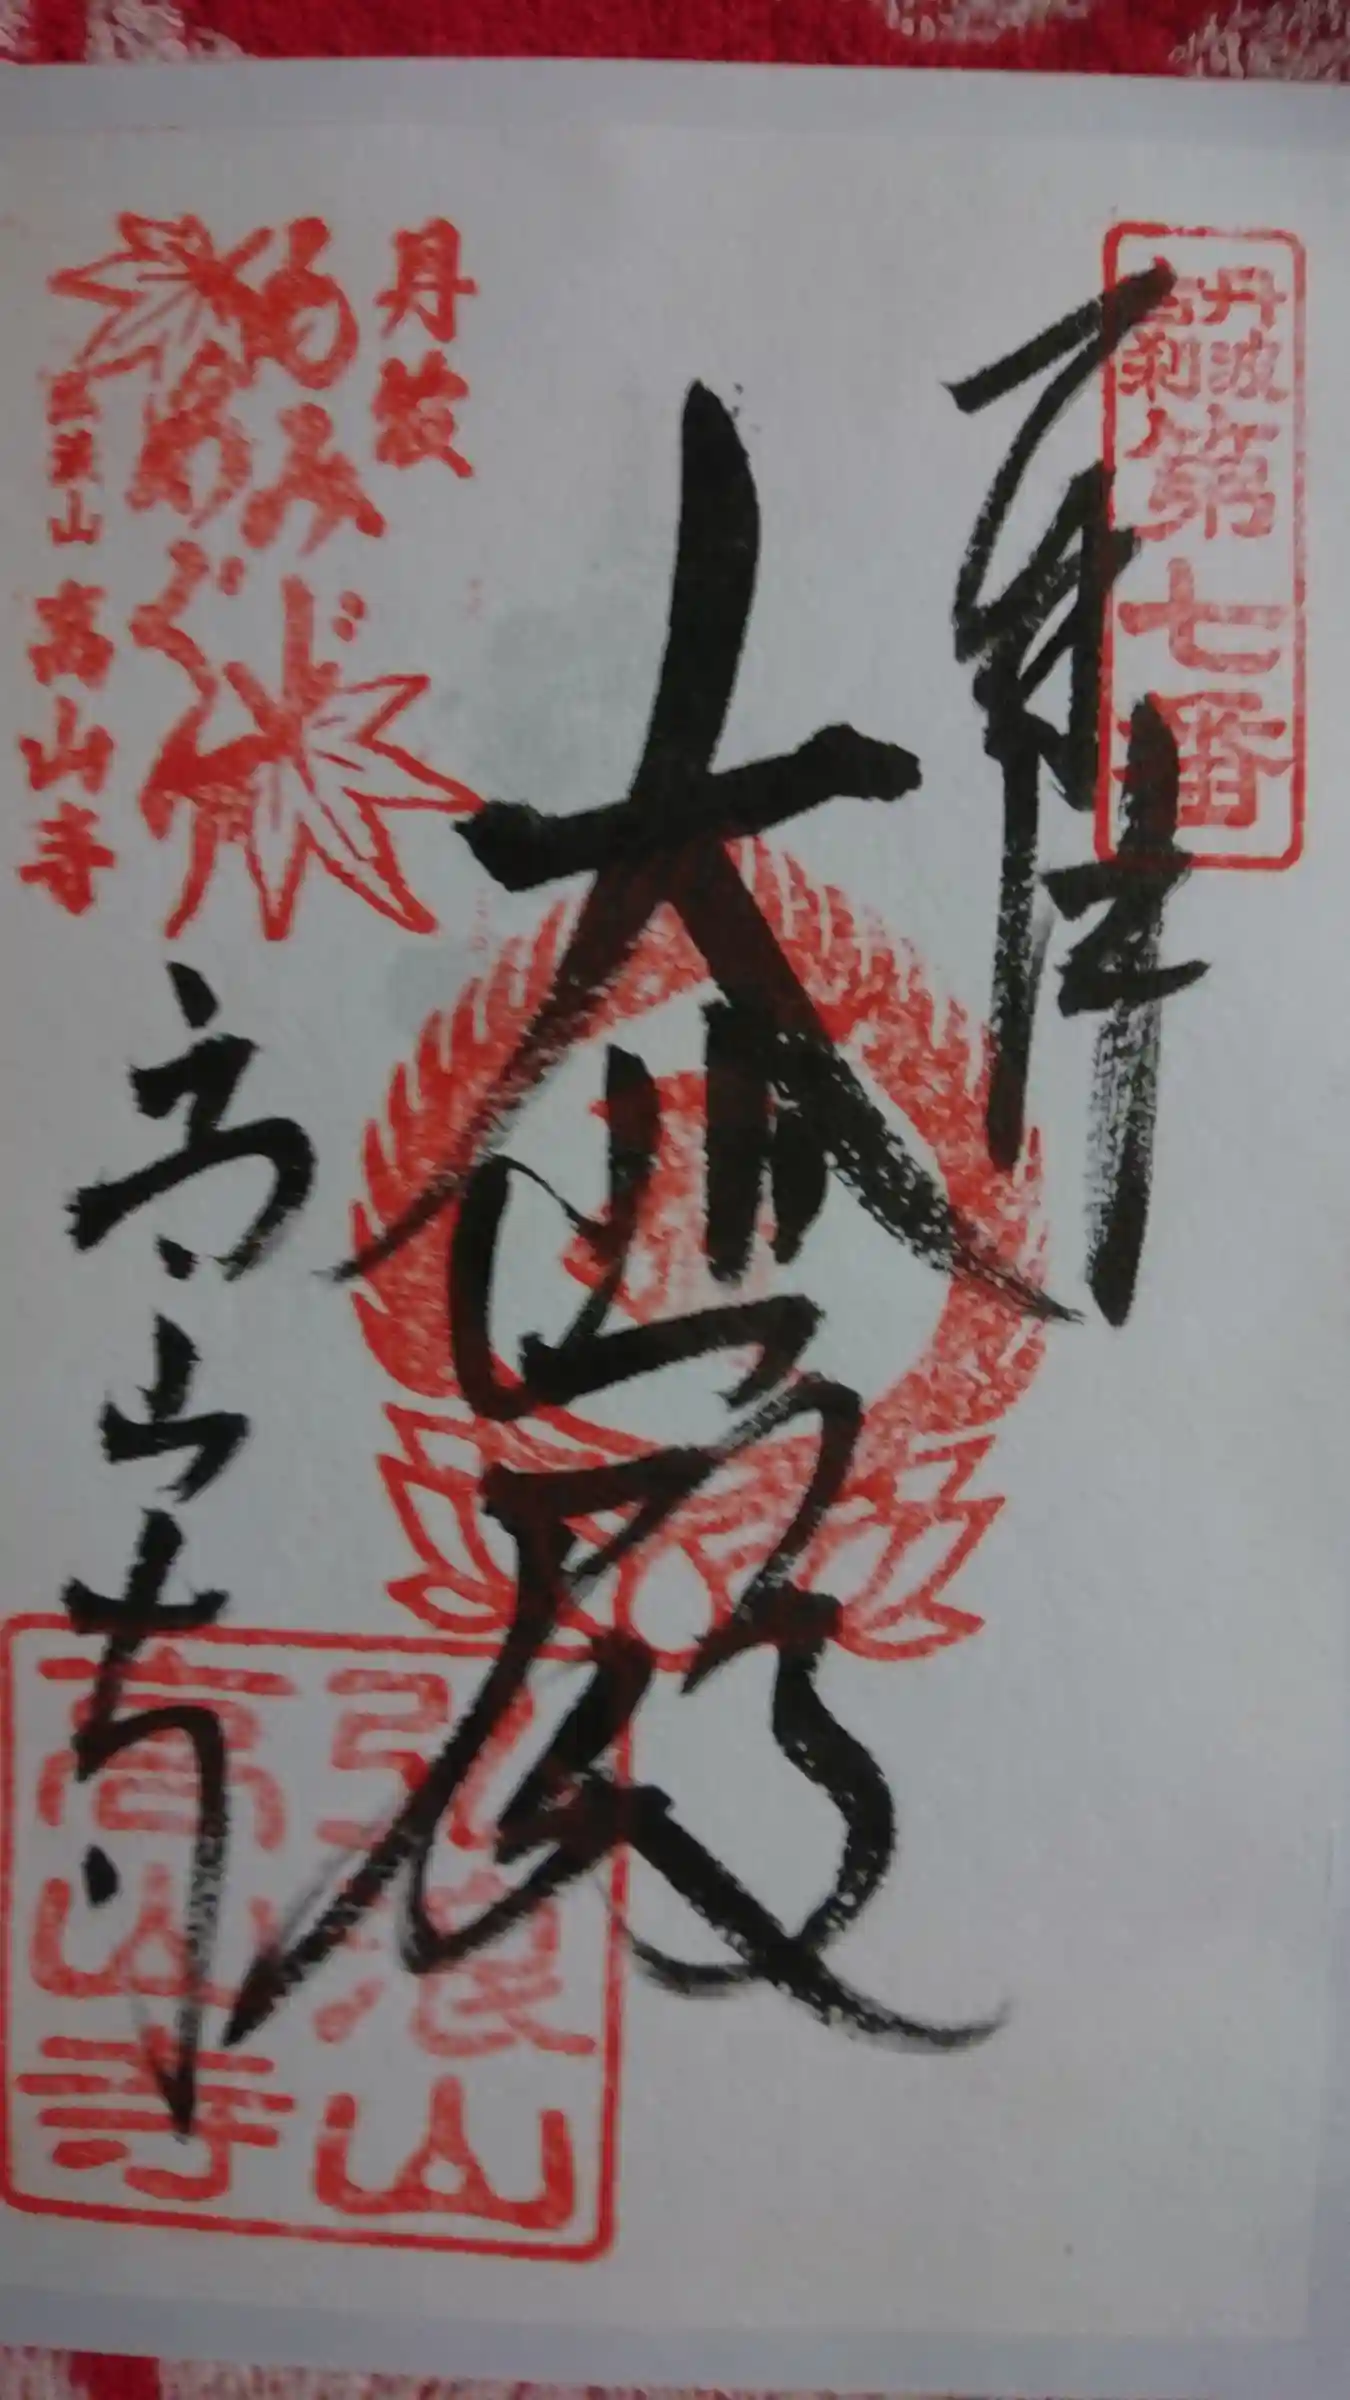 丹波
古刹
第七番
奉拝
大悲殿
丹波
もみじ
めぐり
弘浪山 高山寺
高山寺
弘浪山
高山寺